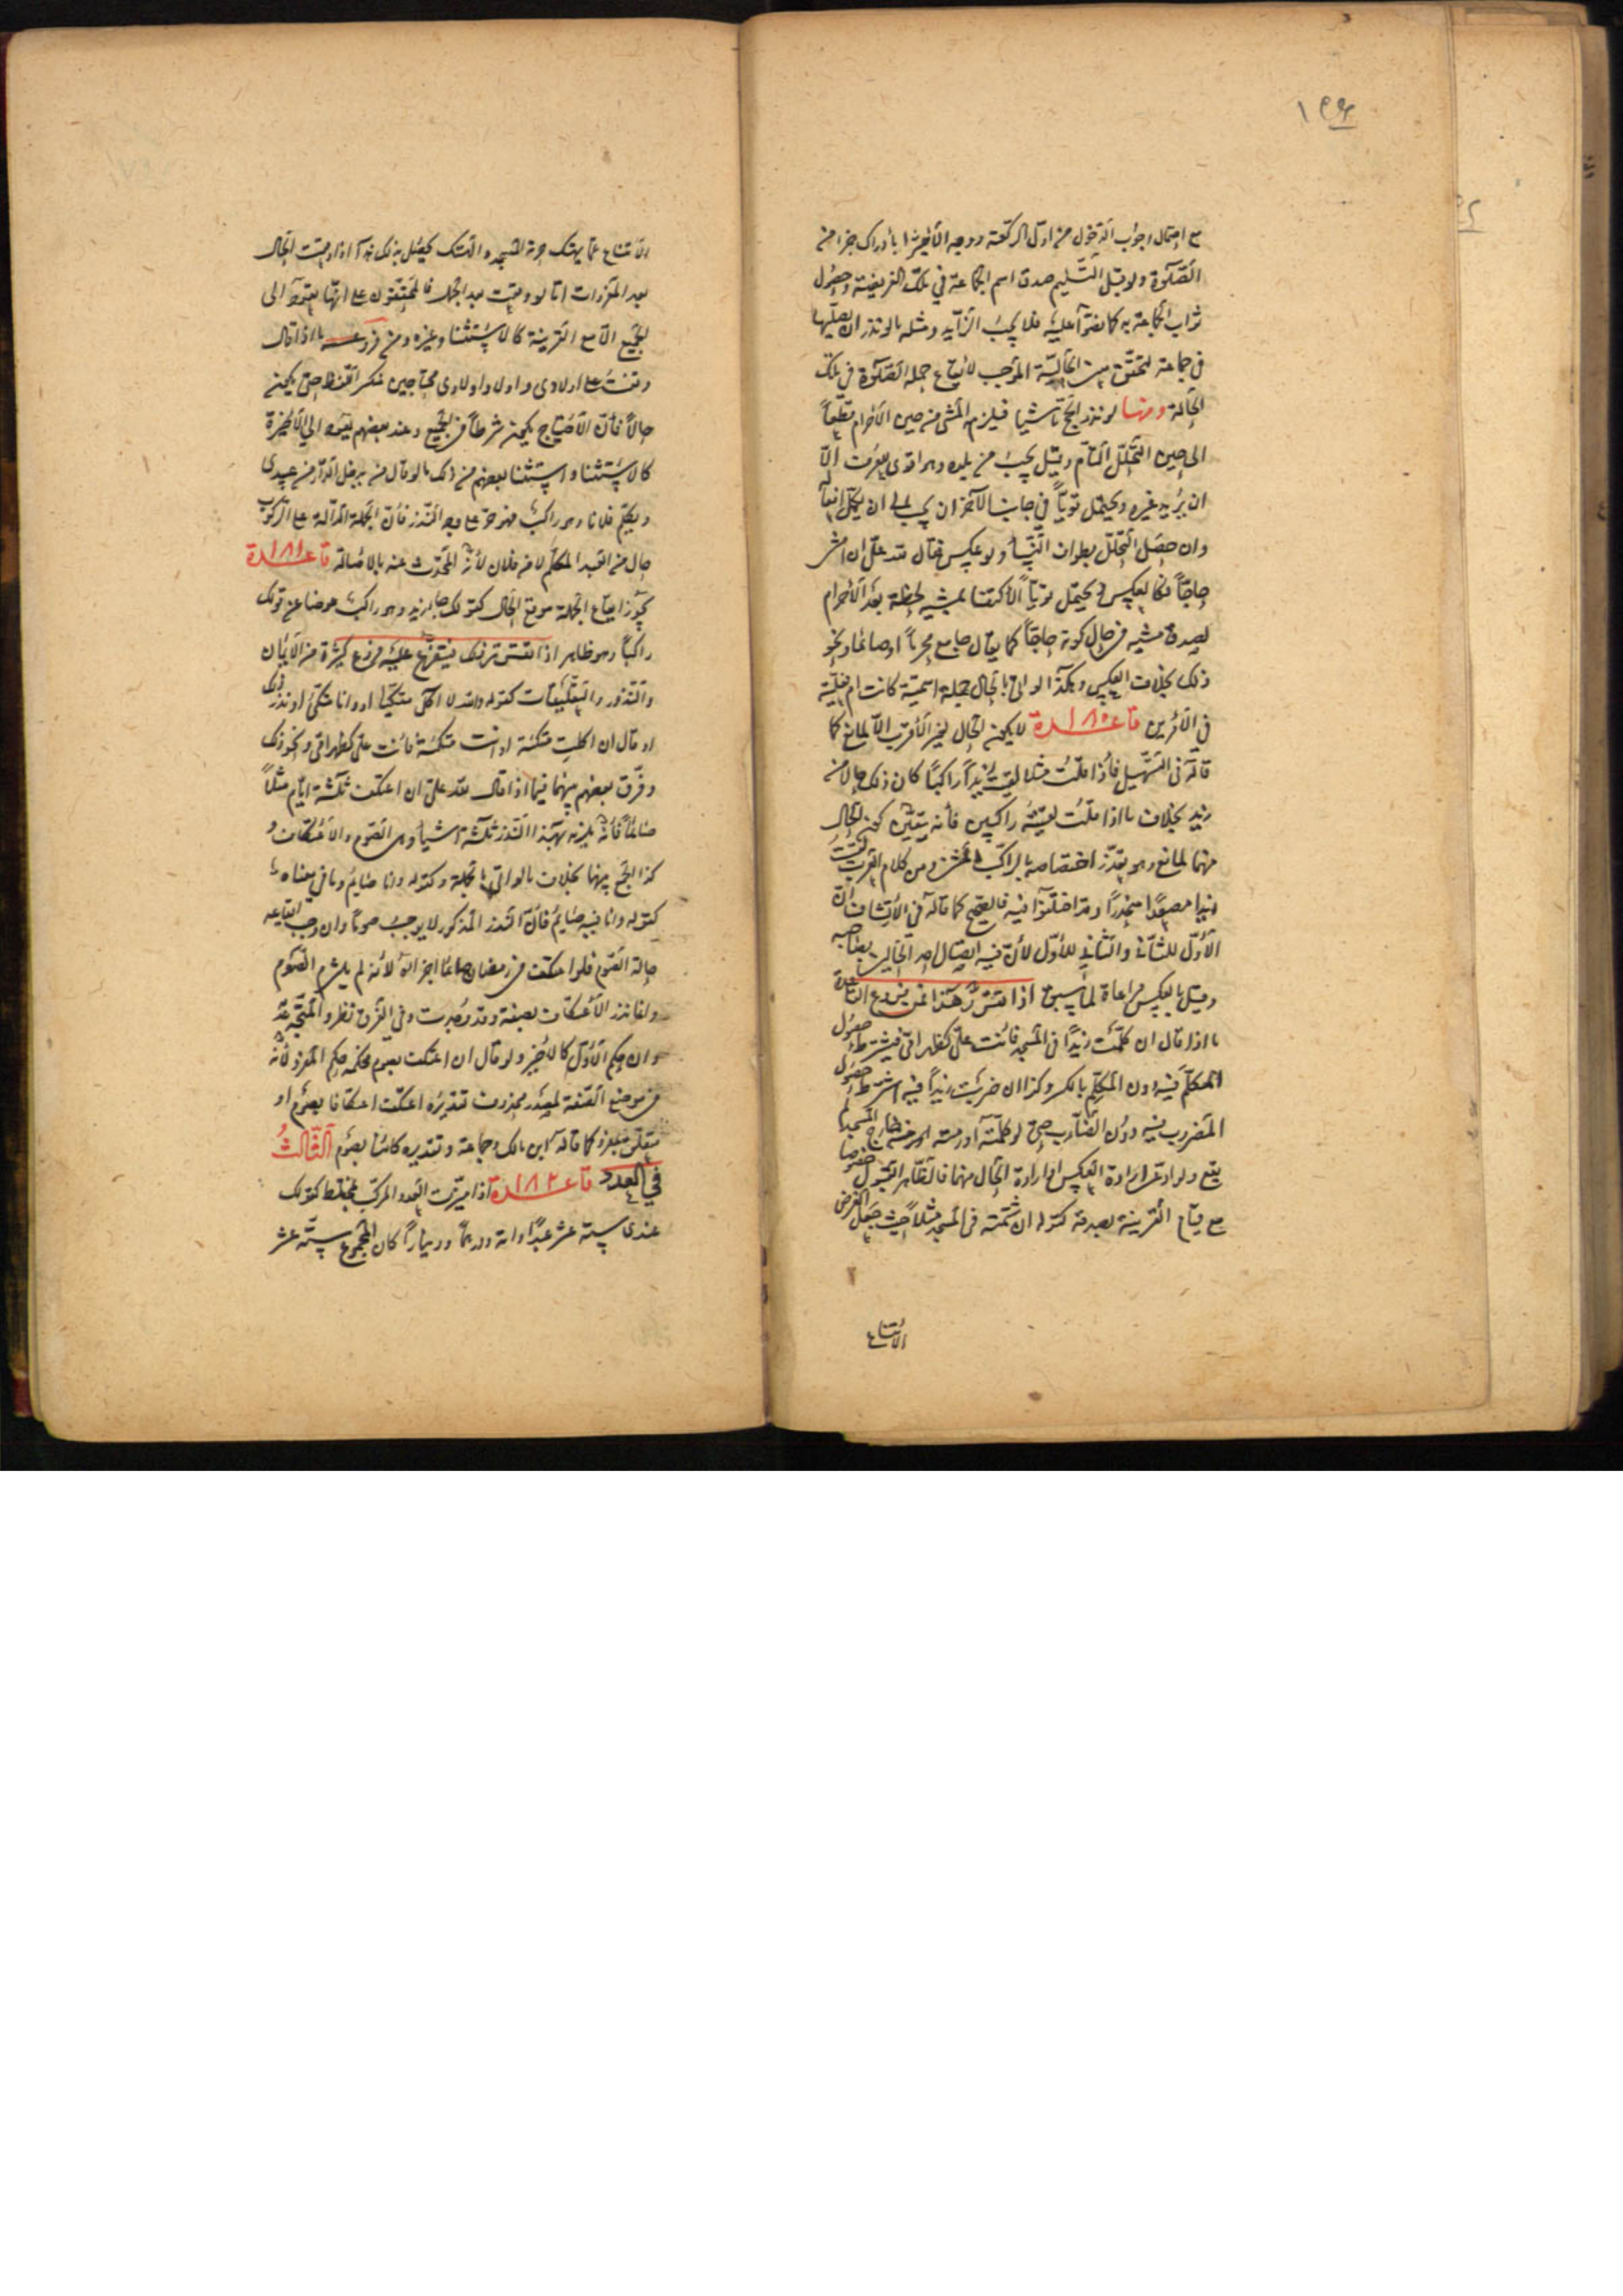 ١٩٤
مع احتمال وجوب الدخول من اول الركعة ووجه الأخير بادراك جزء من
الصلوة ولو قبل التسليم صدق اسم الجماعة في تلك الفريضة وحصول
ثواب الجماعة به كما نصوا عليه فلا يجب الزايد ومثله ما لو نذر ان يصليها
في جماعة لتحقق الحالية الموجب لايقاع جملة الصلوة في تلك
الحالة ومنها لو نذر الحج ماشيا فيلزم المشي من حين الأحرام مطلقاً
الى حين التحلل التام وقيل يجب من بلده وهو اقوى لعرف الا
ان يريد غيره ويحتمل قوياً في جانب الآخر ان يجب له الى ان يكمل افعاله
وان حصل التحلل بطواف النساء ولو عكس فقال لله علي ان امشي
حاجّاً فكالعكس ويحتمل قوياً الأكتفا بمشيه لحظة بعد الأحرام
لصدق مشيه في حال كونه حاجّاً كما يقال جامع محرماً او صائما ونحو
ذلك بخلاف العكس وهكذا لو اتى بالحال جملة اسمية كانت ام فعلية
في الأمرين قاعدة ١٨٠ لا يكون الحال لغير الأقرب الا لمانع كما
قاله في التسهيل فاذا قلت مثلا لقيت زيداً راكباً كان ذلك حالا من
زيد بخلاف ما اذا قلت لقيته راكبين فأنه يتعين كون الحال
منهما لمانع وهو تعذر اختصاصه بالراكب ومن كلام العرب لقيت
زيدا مصعداً منحدراً وقد اختلفوا فيه فالصحيح كما قاله في الأرتشاف ان
الأول للثاني والثاني للأول لأن فيه اتصال احد الحالين بصاحبه
وقيل بالعكس مراعاة لما سبق اذا تقرر هذا فمن فروع القاعدة
ما اذا قال ان كلّمت زيداً في المسجد فأنت علي كظهر امي فيشترط حصول
المكلَّم فيه دون المكلِّم بالكسر وكذا ان ضربت زيداً فيه اشترط حصول
المضروب فيه دون الضارب حتى لو كلّمته او رمته خارج المسجد لم
يقع ولو ادعى ارادة العكس او ارادة الحال منهما فالظاهر القبول خصوصا
مع قيام القرينة بصدقه كقوله ان شتمته في المسجد مثلاً حيث جعل الغرض
الامتناع
الأمتناع عما يهتك حرمة المسجد والهتك يحصل بذلك هذا اذا وقعت الحال
بعد المفردات امّا لو وقعت بعد الجمل فالمحققون على انها تعود الى
الجميع الا مع القرينة كالاستثنا وغيره ومن فروعه ما اذا قال
وقفت على اولادي واولاد اولادي محتاجين حتى يكون
حالاً فأن الأحتياج يكون شرطاً في الجميع وعند بعضهم يعود الى الأخيرة
كالأستثنا واستثنا بعضهم من ذلك ما لو قال من يدخل الدار من عبيدي
ويكلم فلانا وهو راكب فهو حر على وجه النذر فأن الجملة الدالة على الركوب
حال من العبد المكلم لا من فلان لأنه المحدث عنه بالأصالة قاعدة ١٨١
يجوز ايقاع الجملة موقع الحال كقولك جاء زيد وهو راكب عوضا عن قولك
راكباً وهو ظاهر اذا تقرر ذلك فيتفرع عليه فروع كثيرة من الأيمان
والنذور والتعليقات كقوله والله لا اكل متكئاً او وانا متكئ او نذر ذلك
او قال ان اكلت متكئة او انت متكئة فأنت علي كظهر امي ونحو ذلك
وفرق بعضهم بينهما فيما اذا قال لله علي ان اعتكف ثلثة ايام مثلاً
صائماً فأنه يلزمه بهذا النذر ثلثة اشيا وهي الصوم والأعتكاف و
كذا الجمع بينهما بخلاف ما لو اتى بالجملة كقوله وانا صايم وما في معناه
كقوله وانا فيه صايم فأن النذر المذكور لا يوجب صوماً وان وجب ايقاعه
حالة الصوم فلو اعتكف في رمضان صائما اجزأه لأنه لم يلتزم الصوم
وانما نذر الأعتكاف بصفة وقد وجدت وفي الفرق نظر والمتجه عدمه
وان حكم الأول كالأخير ولو قال ان اعتكف بصوم فحكمه حكم المفرد لأنه
في موضع الصفة لمصدر محذوف تقديره اعتكف اعتكافا بصوم او
متعلق بمفرد كما قاله ابن مالك وجماعة وتقديره كائنا بصوم الثالث
في العدد قاعدة ١٨٢ اذا ميّزت العدد المركب بمختلط كقولك
عندي ستة عشر عبداً وامة ودرهماً وديناراً كان المجموع ستة عشر